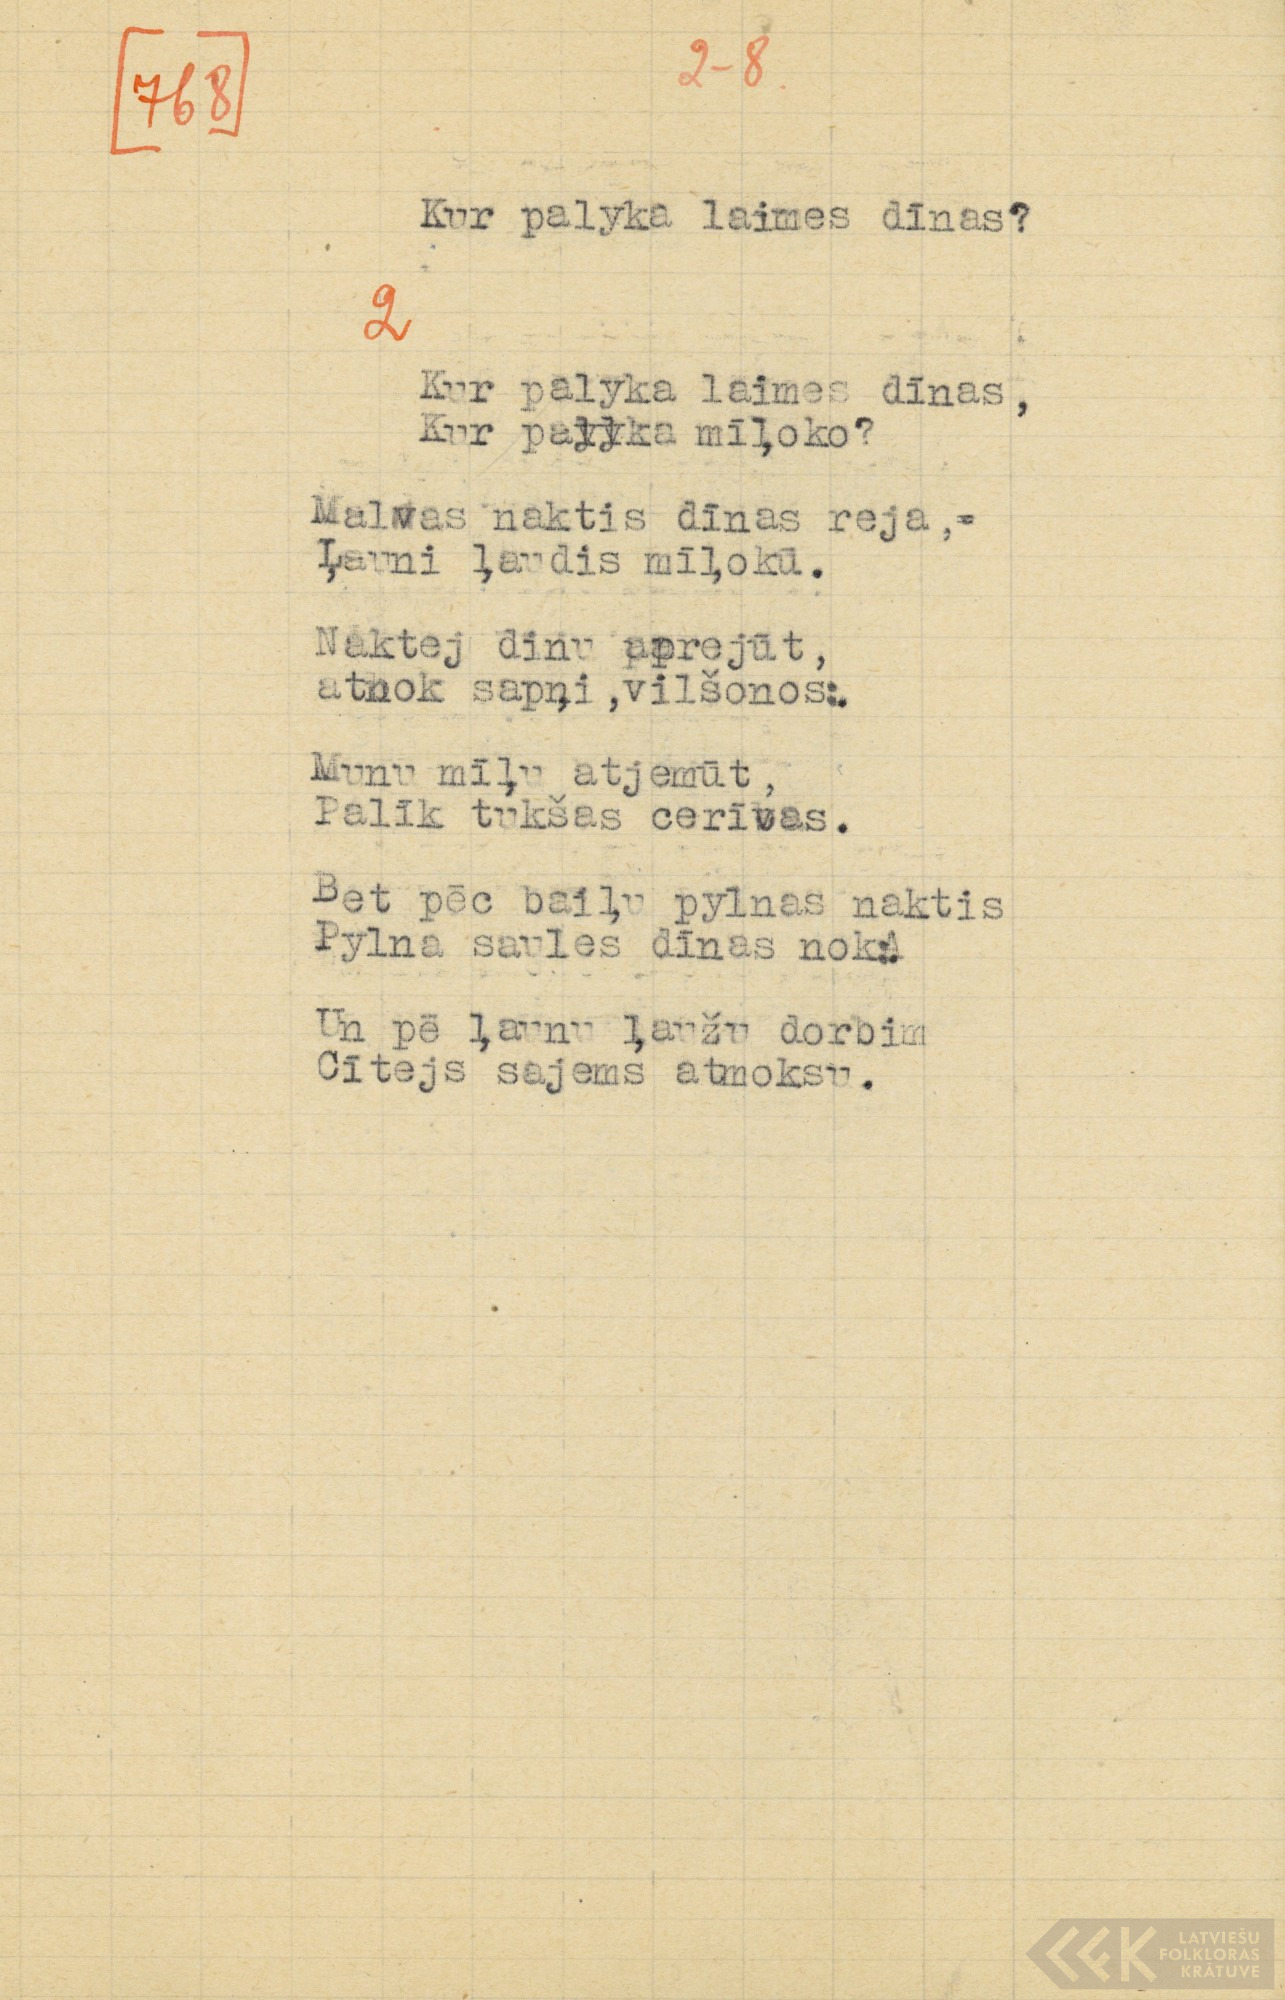 [768]
2-8.
Kur palyka laimes dīnas?
2
Kur palyka laimes dīnas,
Kur palyka mīļoko?
Malvas naktis dīnas reja,=
Ļauni ļaudis mīļokū.
Naktej dinu aprejūt,
atnok sapņi,vilšonos:.
Munu mīļu atjemūt,
Palīk tukšas cerīvas.
Bet pēc baiļu pylnas naktis
Pylna saules dīnas nok:
Un pē ļaunu ļaužu dorbim
Cītejs sajems atmoksu.
LATVIEŠU
FOLKLORAS
KRĀTUVE